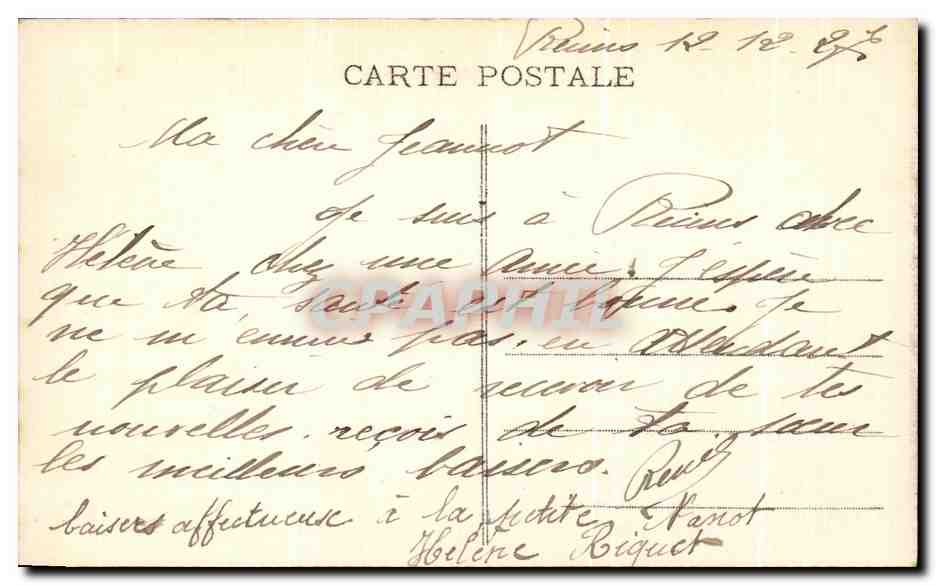 Reims 12-12-27
CARTE POSTALE
Ma chère Jeannot
Je suis à Reims avec
Hélène chez une amie. J'espère
que ta santé est bonne. Je
CPAPHIL
ne m'ennuie pas, en attendant
le plaisir de recevoir de tes
nouvelles. reçois de ta sœur
les meilleurs baisers. Renée
baisers affectueuse à la petite Nanot
Hélène Riquet